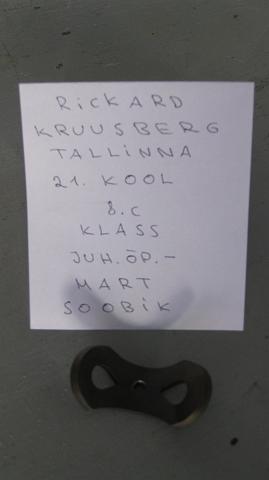 RiCKARD
KRUUSBERG
TALLiNNA
21. KOOL
8.C
KLASS
JUH.ÕP.-
MART
SOOBiK